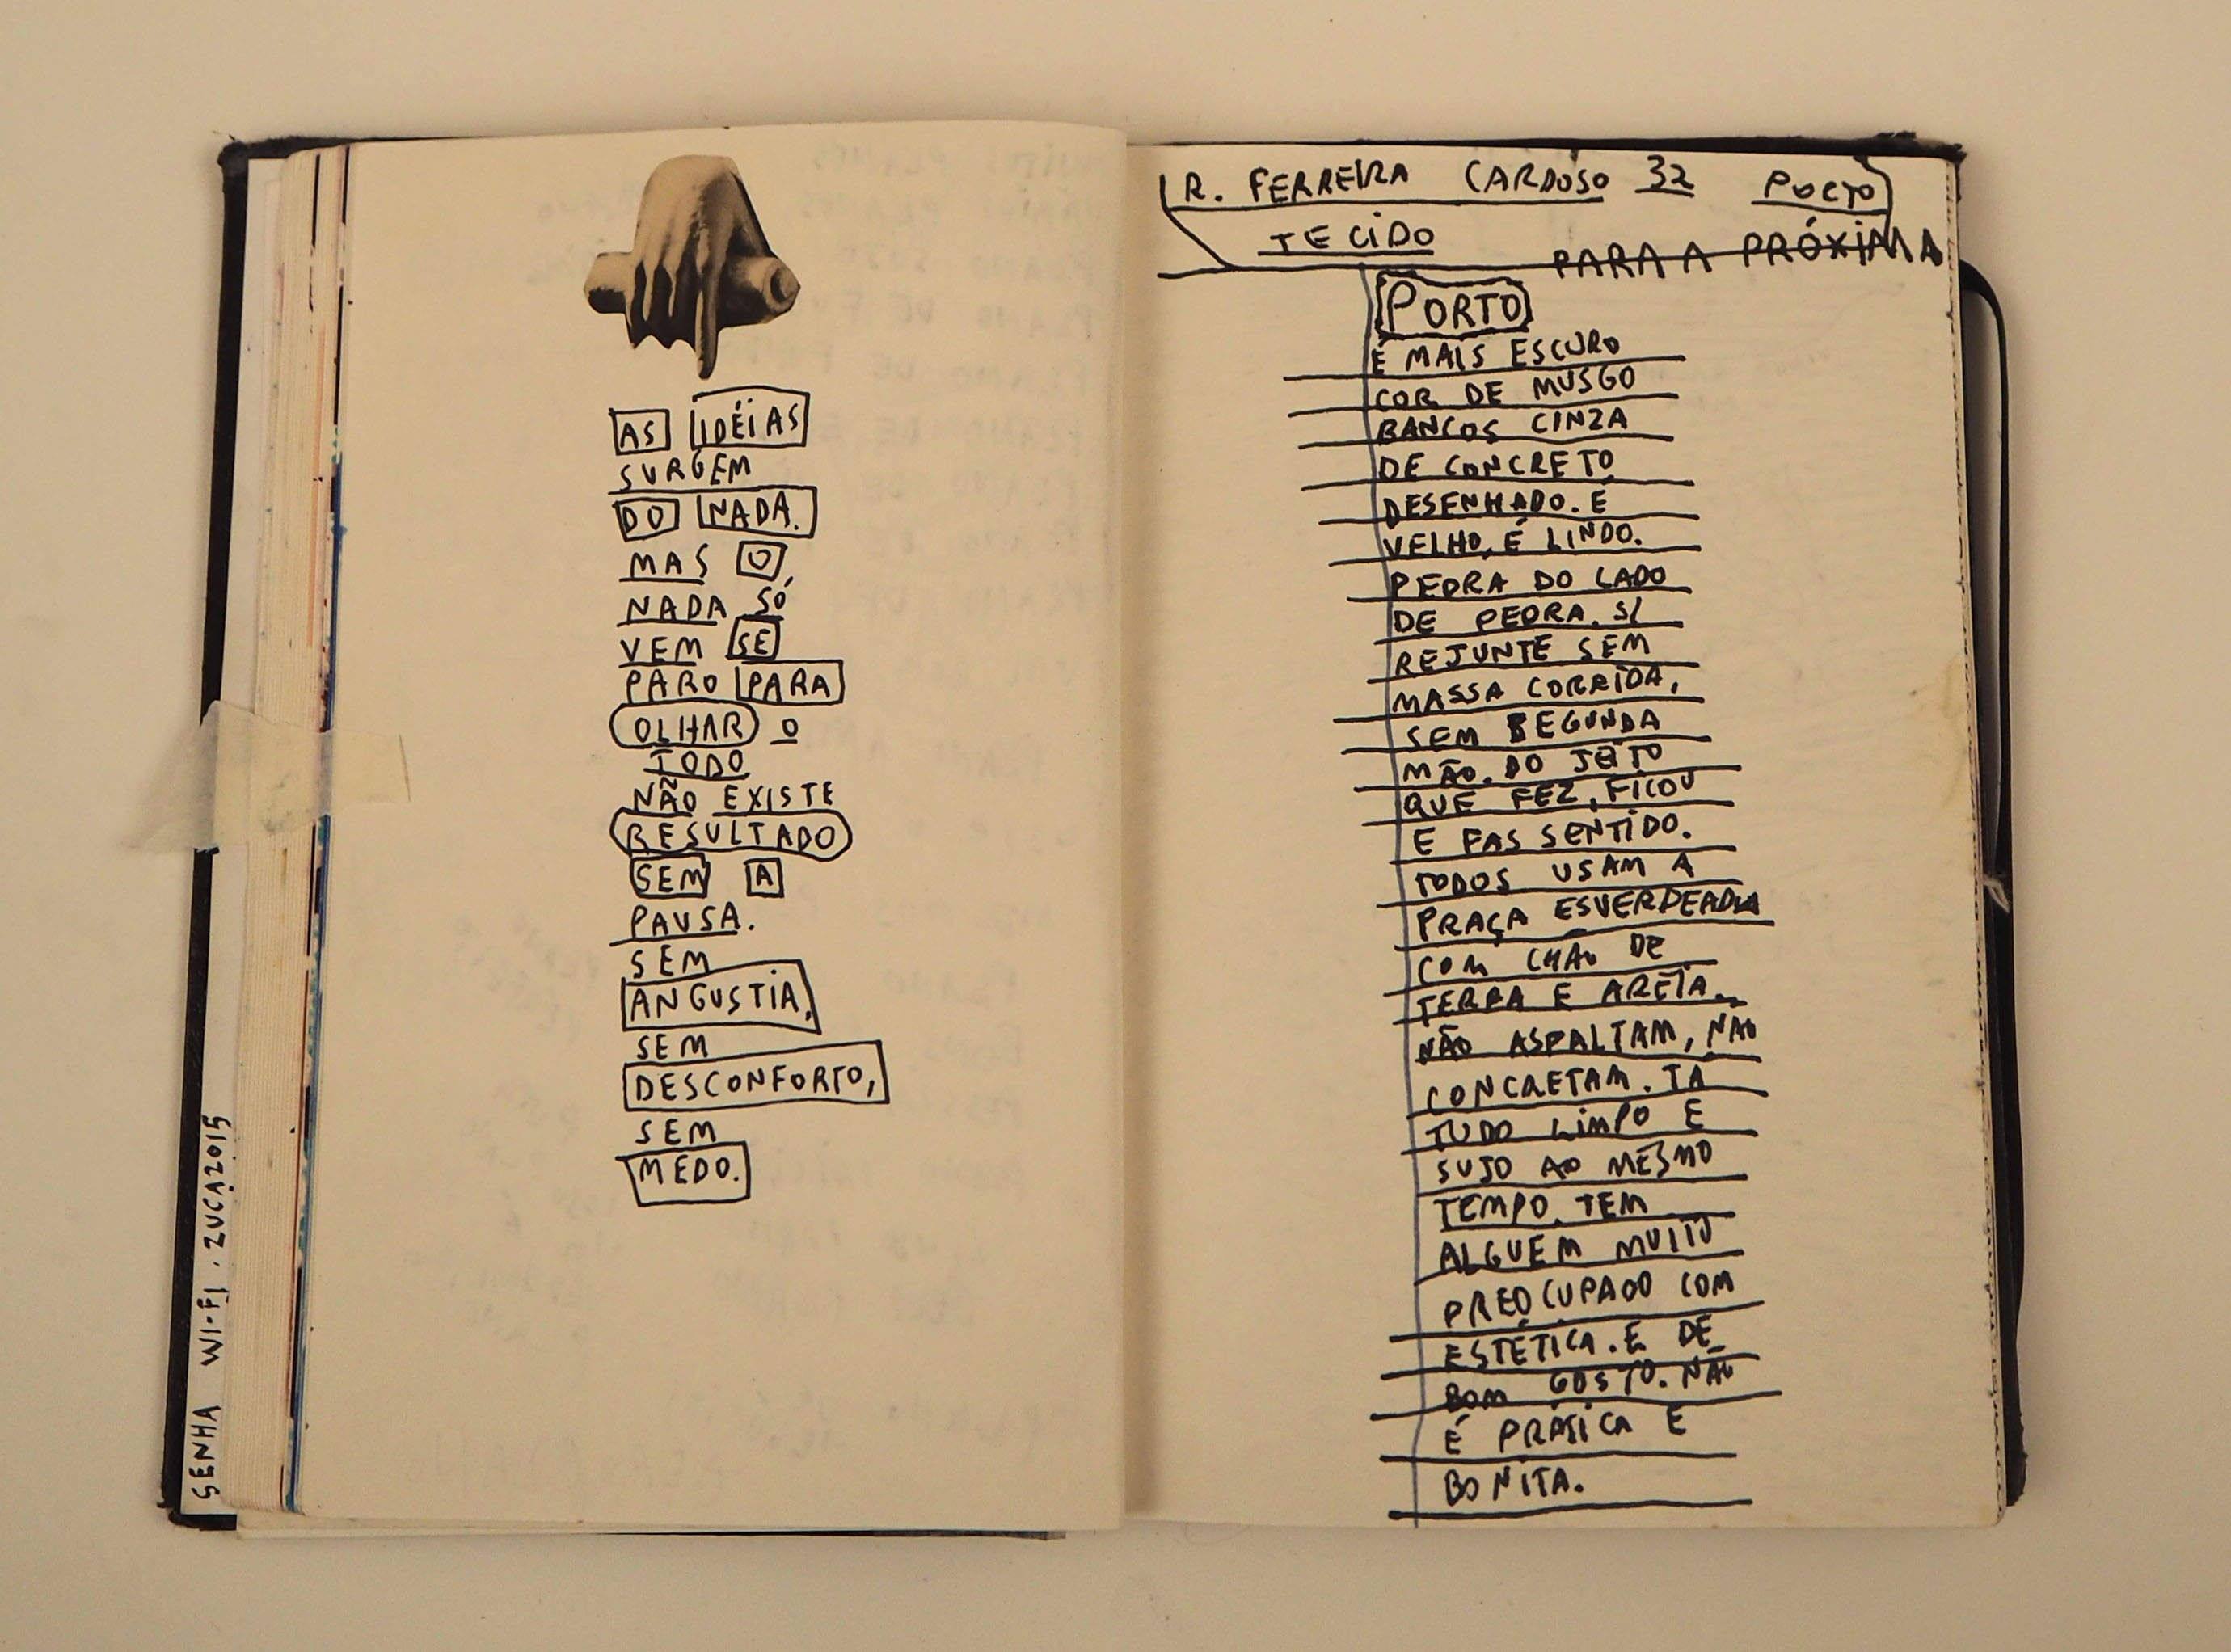 AS IDÉIAS
SURGEM
DO NADA.
MAS O
NADA SÓ
VEM SE
PARO PARA
OLHAR O
TODO
NÃO EXISTE
RESULTADO
SEM A
PAUSA.
SEM
ANGUSTIA,
SEM
DESCONFORTO,
SEM
MEDO.
SENHA WI-FI. ZUCA2015
R. FERREIRA CARDOSO 32 PORTO
TECIDO
PARA A PRÓXIMA
PORTO
É MAIS ESCURO
COR DE MUSGO
BANCOS CINZA
DE CONCRETO
DESENHADO. É
VELHO, É LINDO.
PEDRA DO LADO
DE PEDRA. S/
REJUNTE SEM
MASSA CORRIDA,
SEM SEGUNDA
MÃO. DO JEITO
QUE FEZ, FICOU
E FAS SENTIDO.
TODOS USAM A
PRAÇA ESVERDEADA
COM CHÃO DE
TERRA E AREIA.
NÃO ASPALTAM, NÃO
CONCRETAM. TA
TUDO LIMPO E
SUJO AO MESMO
TEMPO. TEM
ALGUEM MUITO
PREOCUPADO COM
ESTÉTICA. E DE
BOM GOSTO. NÃO
É PRÁTICA E
BONITA.